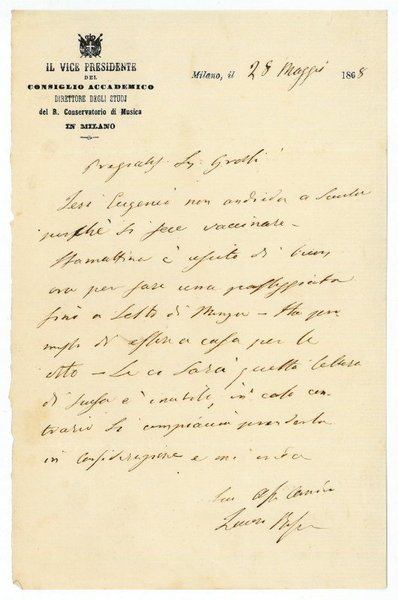 IL VICE PRESIDENTE
DEL
CONSIGLIO ACCADEMICO
DIRETTORE DEGLI STUDJ
del R. Conservatorio di Musica
IN MILANO
Milano, il 28 Maggio 1868
Sig.
Jeri Eugenio non andò a Scuola
perchè si fece vaccinare –
Stamattina è uscito di buon'
ora per fare una passeggiata
fino a Sesto di Monza – Ha pro
messo di essere a casa per le
otto – Se ci sarà questa lettera
di scusa è inutile, in caso con
trario si compiaccia prenderla
in considerazione e mi creda
Suo